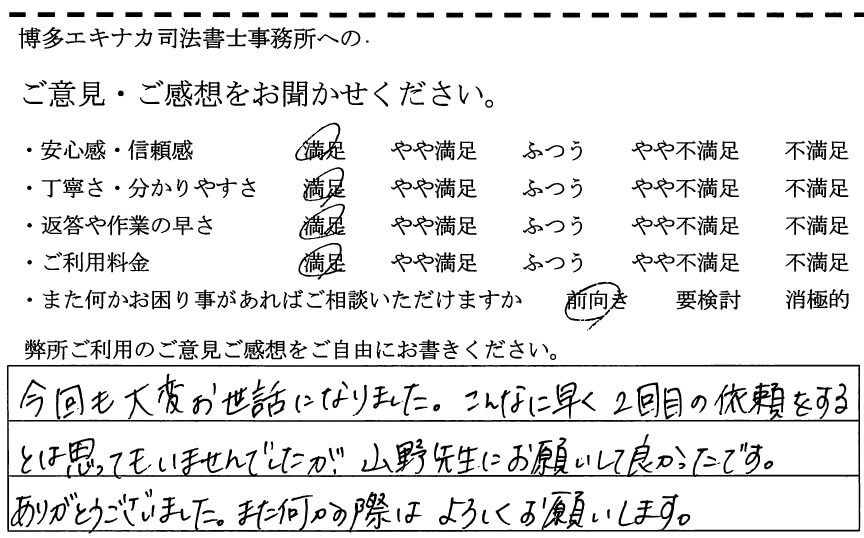 博多エキナカ司法書士事務所への
ご意見・ご感想をお聞かせください。
・安心感・信頼感 満足 やや満足 ふつう やや不満足 不満足
・丁寧さ・分かりやすさ 満足 やや満足 ふつう やや不満足 不満足
・返答や作業の早さ 満足 やや満足 ふつう やや不満足 不満足
・ご利用料金 満足 やや満足 ふつう やや不満足 不満足
・また何かお困り事があればご相談いただけますか 前向き 要検討 消極的
弊所ご利用のご意見ご感想をご自由にお書きください。
今回も大変お世話になりました。こんなに早く2回目の依頼をする
とは思ってもいませんでしたが、山野先生にお願いして良かったです。
ありがとうございました。また何かの際はよろしくお願いします。